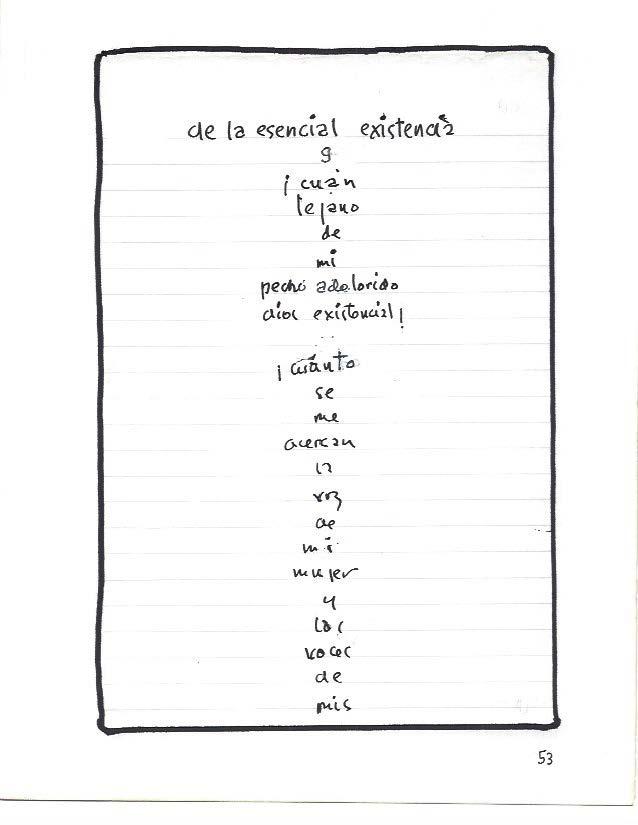 de la esencial existencia
9
¡cuán
lejano
de
mi
pecho adolorido
dios existencial!
¡cuánto
se
me
acercan
la
voz
de
mi
mujer
y
las
voces
de
mis
53